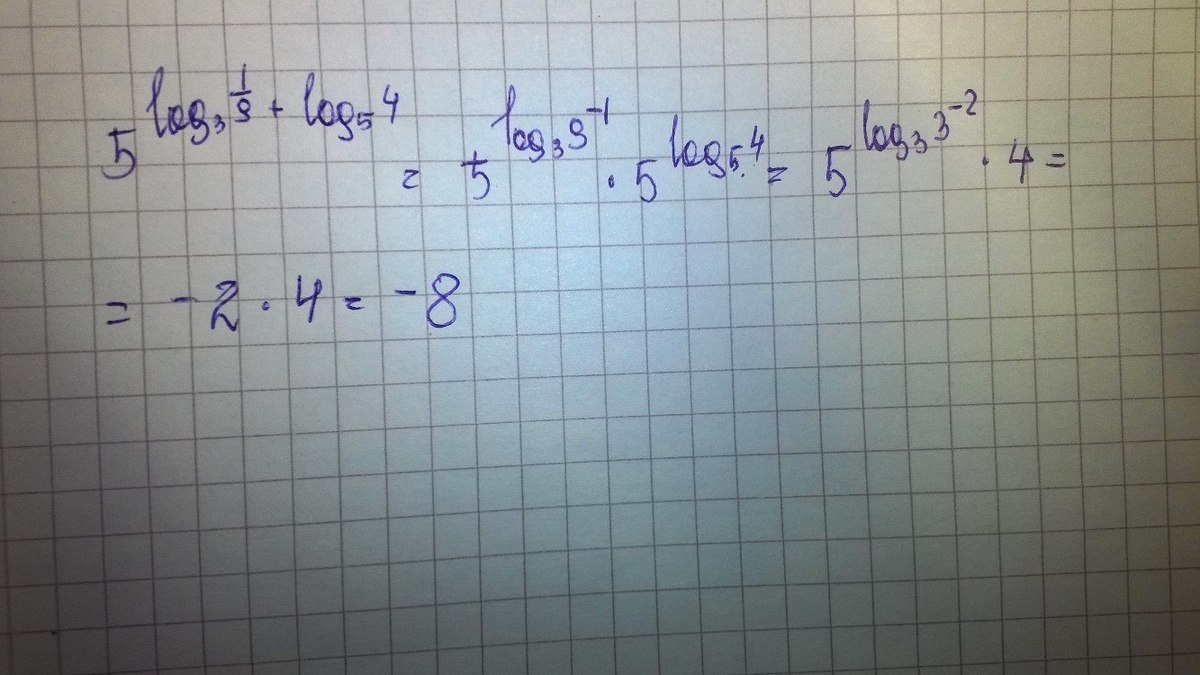 5^{log_3 1/9 + log_5 4} = 5^{log_3 9^{-1}} · 5^{log_5 4} = 5^{log_3 3^{-2}} · 4 =
= -2 · 4 = -8